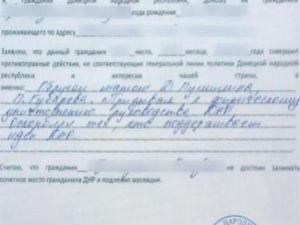 Я, гражданин Донецкой народной республики,
года рождения
проживающего по адресу
Заявляю, что данный гражданин числа, месяца, года совершил
противоправные действия, не соответствующие генеральной линии политики Донецкой народной
республики и интересам нашей страны,
именно: матом Д. Пушилина,
П. Губарева. Призывал к физическому
уничтожению руководства ДНР.
Оскорблял тех, кто поддерживает
идеи ДНР.
Считаю, что гражданин не достоин занимать
почетное место гражданина ДНР и подлежит изоляции.